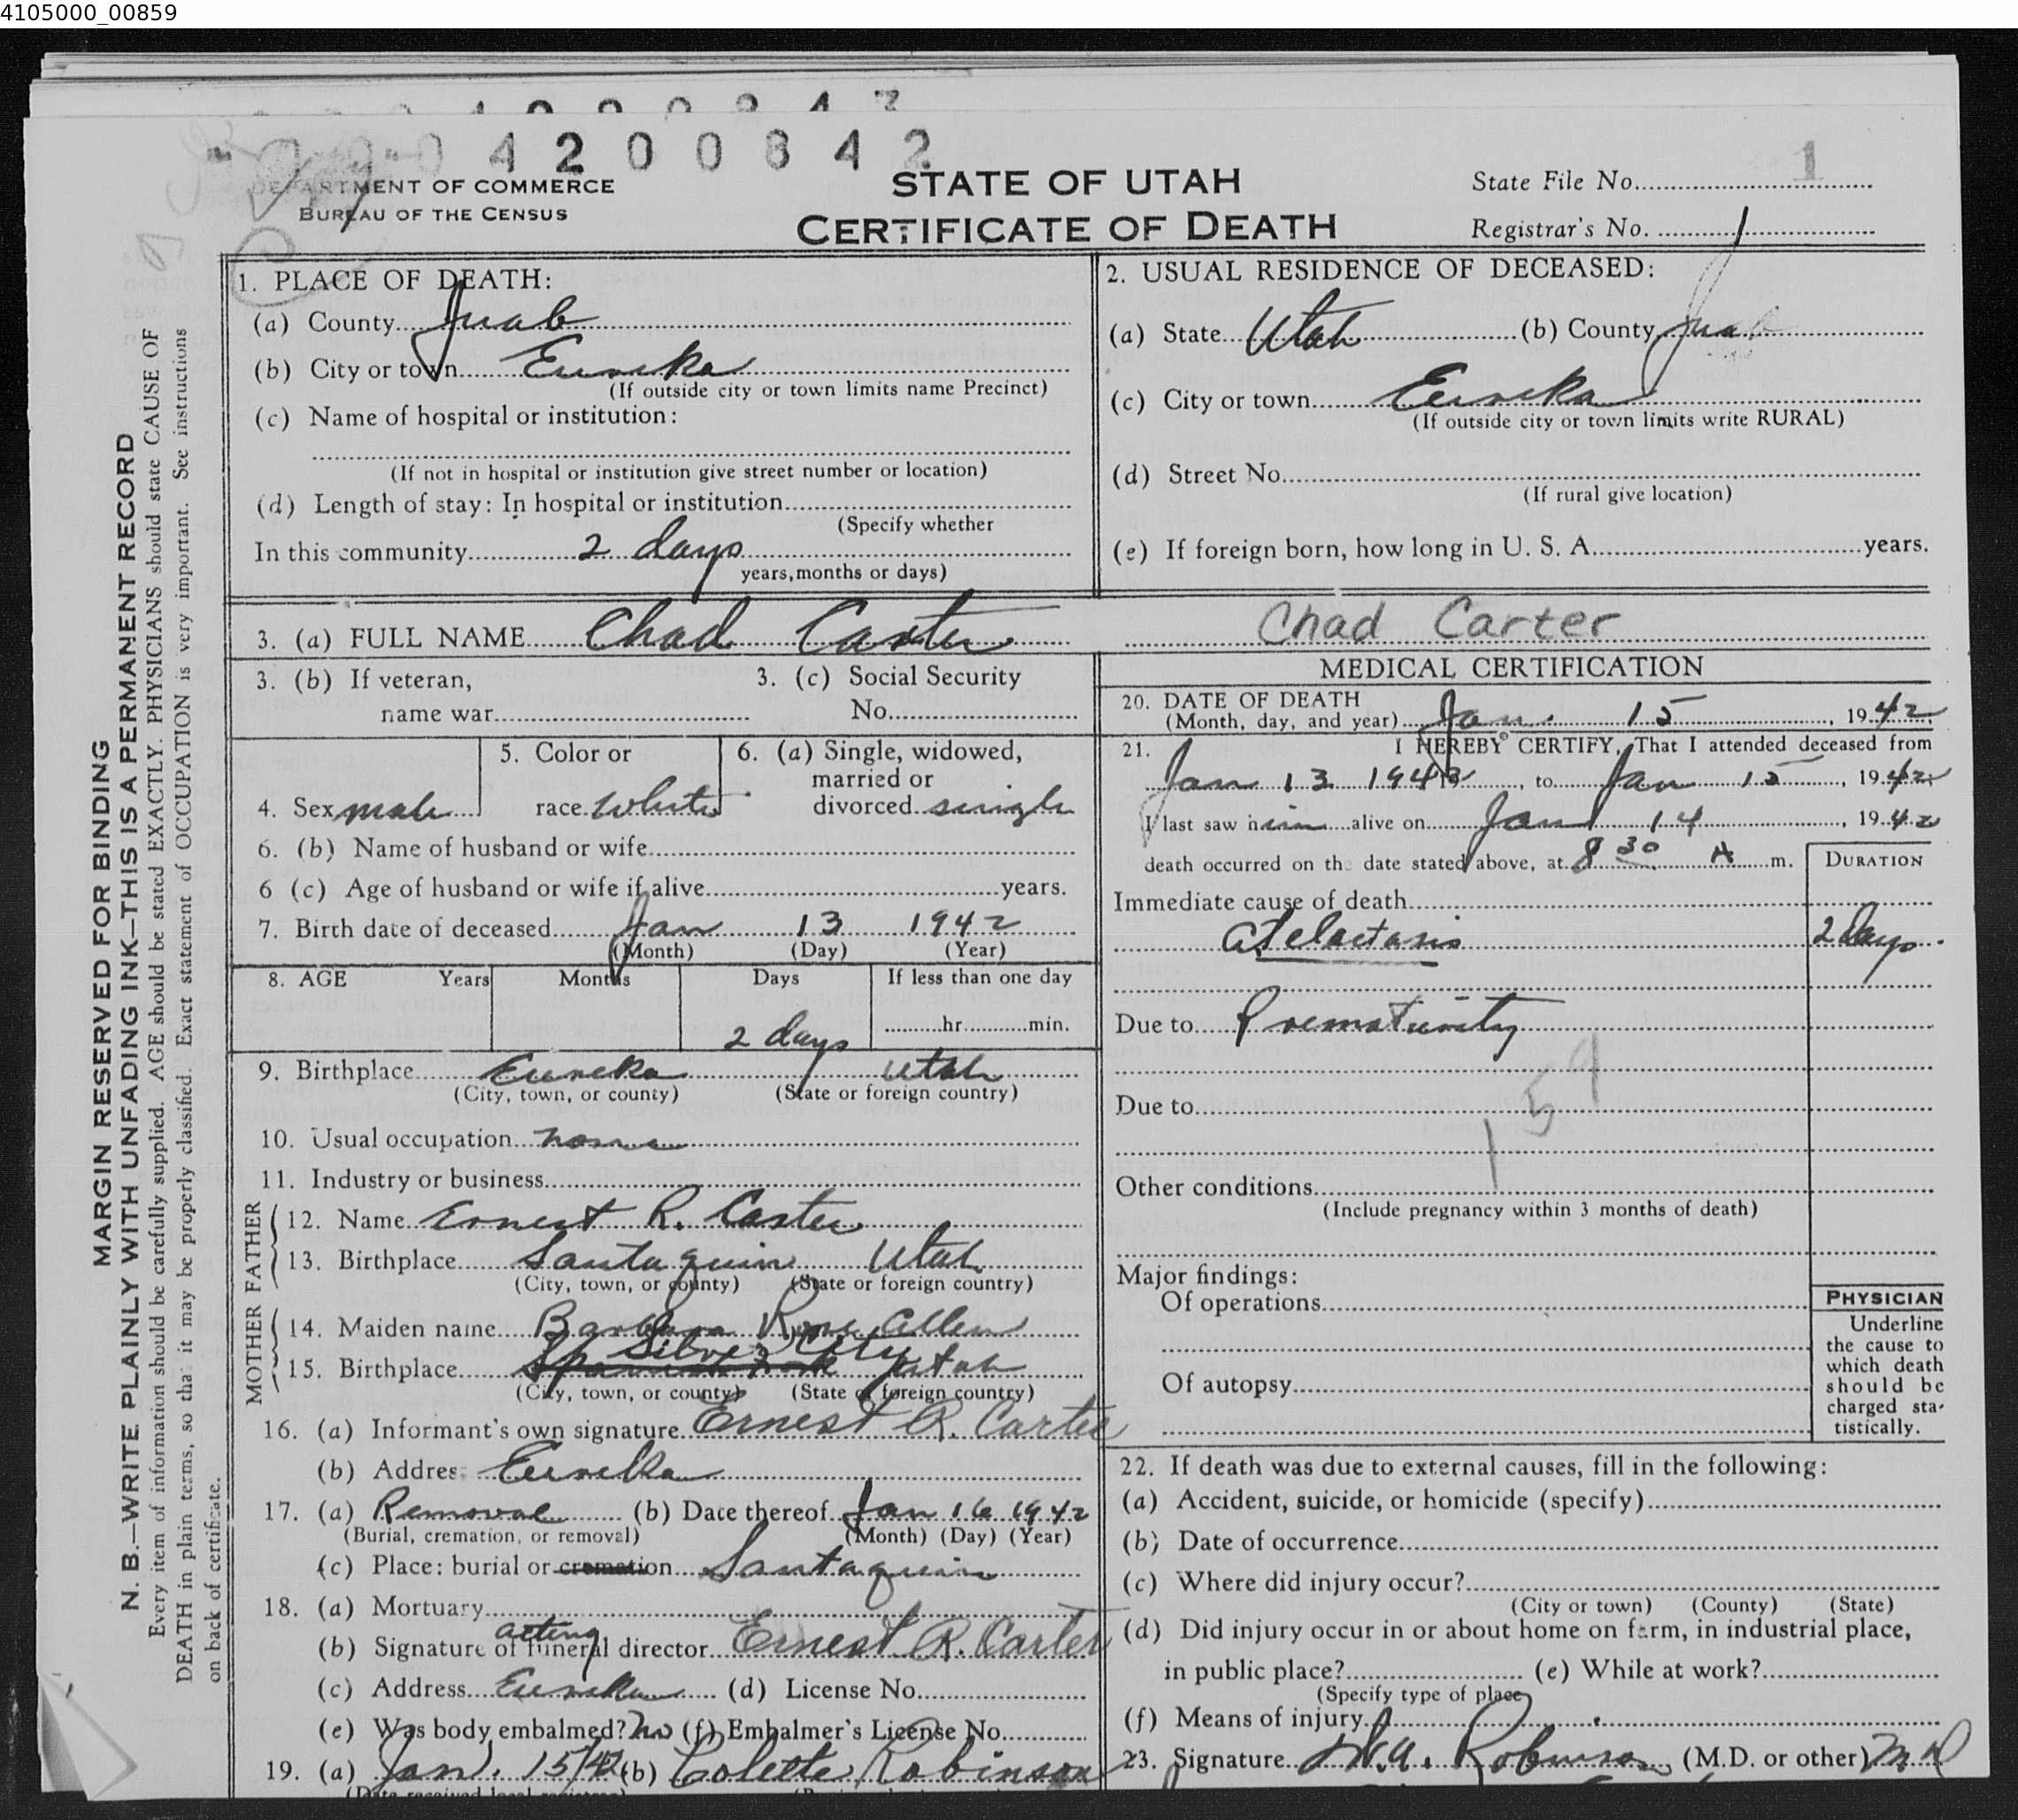 4105000_00859
4200842
DEPARTMENT OF COMMERCE
BUREAU OF THE CENSUS
STATE OF UTAH
CERTIFICATE OF DEATH
State File No. 1
Registrar's No. 1
MARGIN RESERVED FOR BINDING
N. B.—WRITE PLAINLY WITH UNFADING INK—THIS IS A PERMANENT RECORD
Every item of information should be carefully supplied. AGE should be stated EXACTLY. PHYSICIANS should state CAUSE OF
DEATH in plain terms, so that it may be properly classified. Exact statement of OCCUPATION is very important. See instructions
on back of certificate.
1. PLACE OF DEATH:
(a) County Juab
(b) City or town Eureka
(If outside city or town limits name Precinct)
(c) Name of hospital or institution:
(If not in hospital or institution give street number or location)
(d) Length of stay: In hospital or institution
(Specify whether
In this community 2 days
years, months or days)
2. USUAL RESIDENCE OF DECEASED:
(a) State Utah (b) County Juab
(c) City or town Eureka
(If outside city or town limits write RURAL)
(d) Street No.
(If rural give location)
(e) If foreign born, how long in U. S. A. years.
3. (a) FULL NAME Chad Carter Chad Carter
3. (b) If veteran,
name war
3. (c) Social Security
No.
4. Sex male
5. Color or
race White
6. (a) Single, widowed,
married or
divorced single
6. (b) Name of husband or wife
6 (c) Age of husband or wife if alive years.
7. Birth date of deceased Jan 13 1942
(Month) (Day) (Year)
8. AGE Years Months Days If less than one day
2 days hr. min.
9. Birthplace Eureka Utah
(City, town, or county) (State or foreign country)
10. Usual occupation none
11. Industry or business
FATHER
12. Name Ernest R. Carter
13. Birthplace Santaquin Utah
(City, town, or county) (State or foreign country)
MOTHER
14. Maiden name Barbara Rose Allen
Silver City
15. Birthplace Spanish Fork Utah
(City, town, or county) (State or foreign country)
16. (a) Informant's own signature Ernest R. Carter
(b) Address Eureka
17. (a) Removal (b) Date thereof Jan 16 1942
(Burial, cremation, or removal) (Month) (Day) (Year)
(c) Place: burial or cremation Santaquin
18. (a) Mortuary
acting
(b) Signature of funeral director Ernest R. Carter
(c) Address Eureka (d) License No.
(e) Was body embalmed? No (f) Embalmer's License No.
19. (a) Jan. 15/42 (b) Colette Robinson
MEDICAL CERTIFICATION
20. DATE OF DEATH
(Month, day, and year) Jan. 15, 1942
21. I HEREBY CERTIFY, That I attended deceased from
Jan 13 1942, to Jan 15, 1942
I last saw him alive on Jan 14, 1942
death occurred on the date stated above, at 8 30 A m.
DURATION
Immediate cause of death
Atelactasis 2 days
Due to Prematurity
159
Due to
Other conditions
(Include pregnancy within 3 months of death)
Major findings:
Of operations
Of autopsy
PHYSICIAN
Underline
the cause to
which death
should be
charged sta-
tistically.
22. If death was due to external causes, fill in the following:
(a) Accident, suicide, or homicide (specify)
(b) Date of occurrence
(c) Where did injury occur?
(City or town) (County) (State)
(d) Did injury occur in or about home on farm, in industrial place,
in public place? (e) While at work?
(Specify type of place)
(f) Means of injury
23. Signature Robinson (M.D. or other) MD